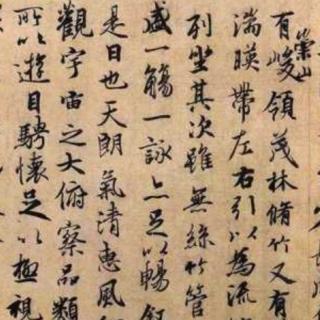 有崇山峻領茂林脩竹又有
湍暎帶左右引以為流
列坐其次雖無絲竹管
盛一觴一詠亦足以暢敘
是日也天朗氣清惠風和
觀宇宙之大俯察品類
所以遊目騁懷足以極視